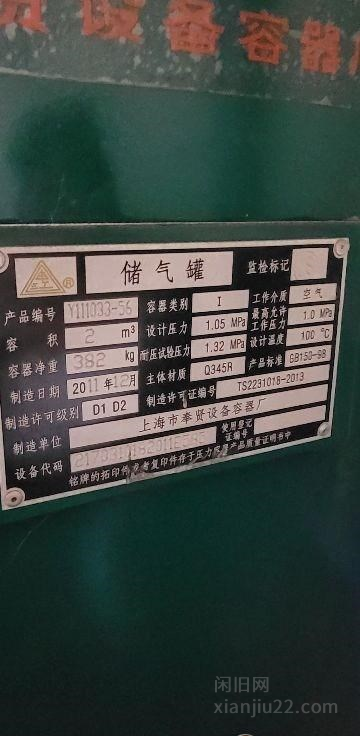 设备容器
储气罐 监检标记
产品编号 Y111033-56 容器类别 I 工作介质 空气
容积 2 m³ 设计压力 1.05 MPa 最高允许工作压力 1.0 MPa
容器净重 382 kg 耐压试验压力 1.32 MPa 设计温度 100 ℃
制造日期 2011年12月 主体材质 Q345R 产品标准 GB150-98
制造许可级别 D1 D2 制造许可证编号 TS2231018-2013
制造单位 上海市奉贤设备容器厂
设备代码 使用登记证编号
铭牌的拓印件或复印件存于压力容器产品质量证明书中
闲旧网
xianjiu22.com